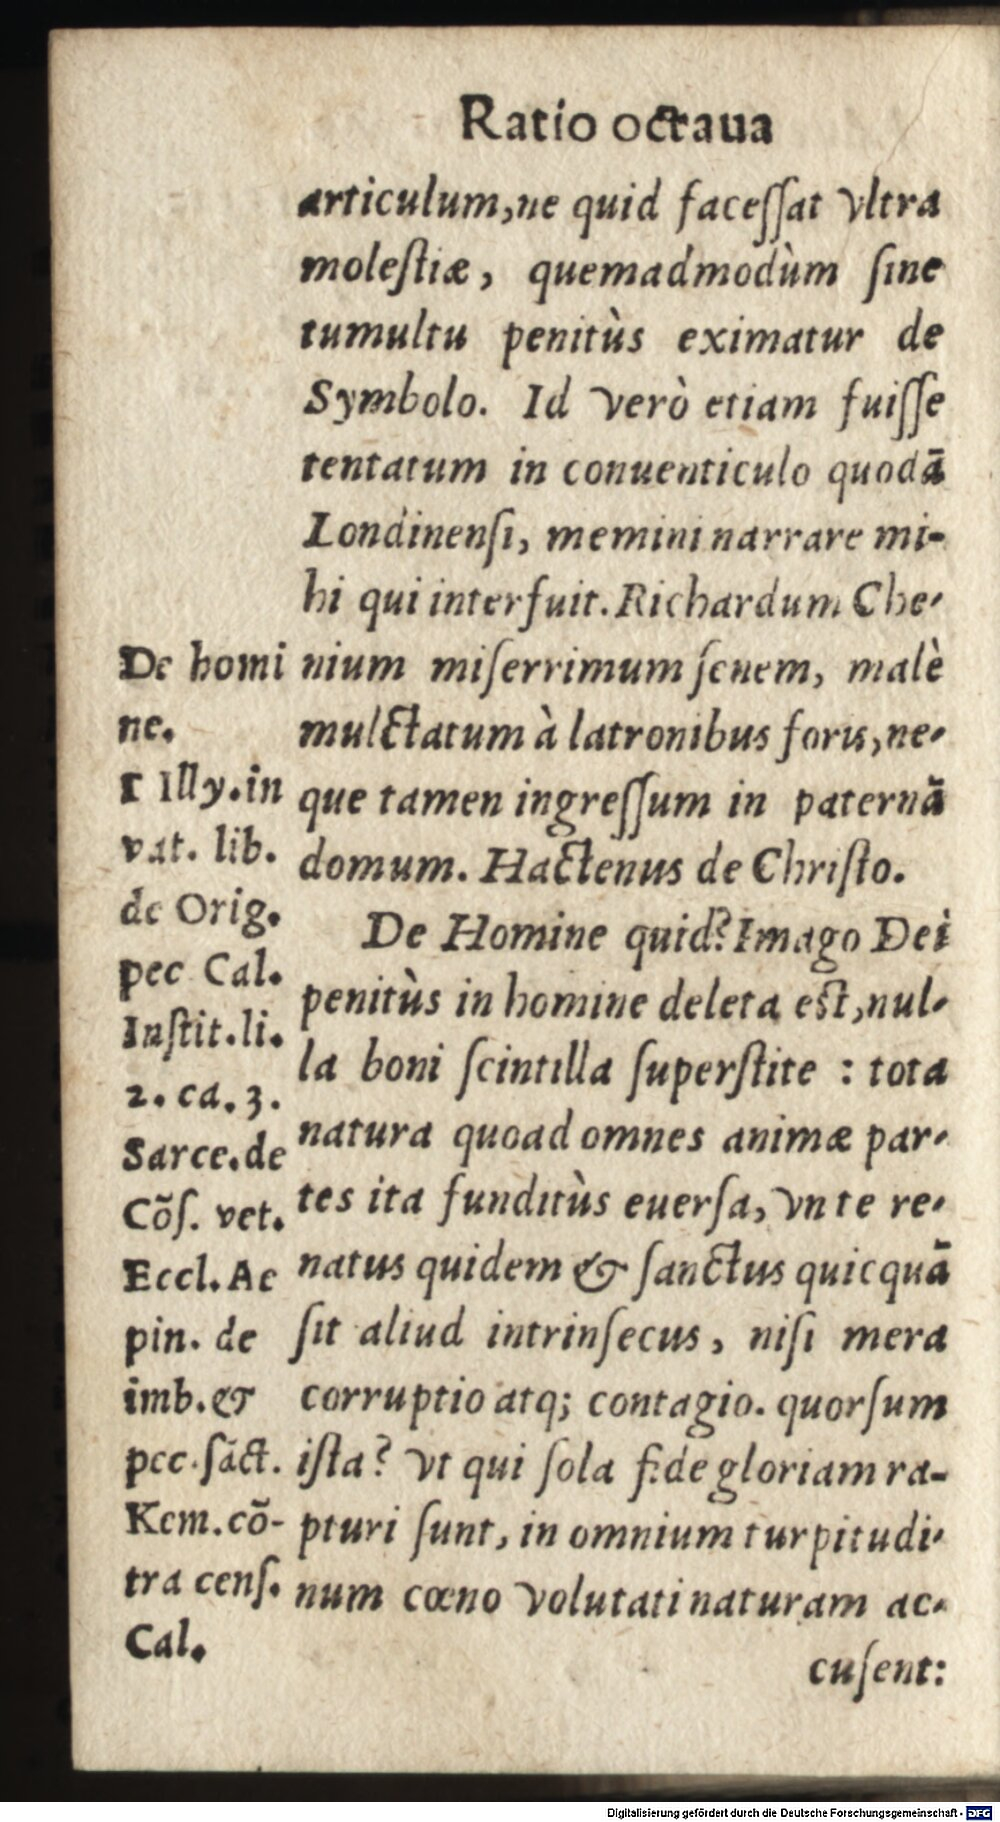 Ratio octaua
articulum,ne quid faceſſat vltra
moleſtiæ, quemadmodùm ſine
tumultu penitùs eximatur de
Symbolo. Id verò etiam fuiſſe
tentatum in conuenticulo quodā
Londinenſi, memini narrare mi-
hi qui interfuit. Richardum Che-
nium miſerrimum ſenem, malè
mulctatum à latronibus foris,ne-
que tamen ingreſſum in paternā
domum. Hactenus de Chriſto.
De Homine quid? Imago Dei
penitùs in homine deleta eſt,nul-
la boni ſcintilla ſuperſtite : tota
natura quoad omnes animæ par-
tes ita funditùs euerſa, vnte re-
natus quidem & ſanctus quicquā
ſit aliud intrinſecus, niſi mera
corruptio atq; contagio. quorſum
iſta? vt qui ſola fide gloriam ra-
pturi ſunt, in omnium turpitudi-
num cœno volutati naturam ac-
cuſent:
De homi
ne.
1 Illy.in
vat. lib.
de Orig.
pec Cal.
Inſtit.li.
2. ca. 3.
Sarce.de
Cōſ. vet.
Eccl. Ac
pin. de
imb.&
pec.ſāct.
Kem.cō-
tra cenſ.
Cal.
Digitalisierung gefördert durch die Deutsche Forschungsgemeinschaft - DFG